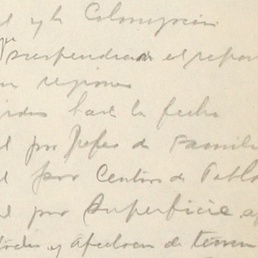 y la Colonización
que
suspendieran el repar
en regiones
hast la fecha
por Jefes de Famili
por Centros de Pobla
por Superficie a
y afectacn de terren